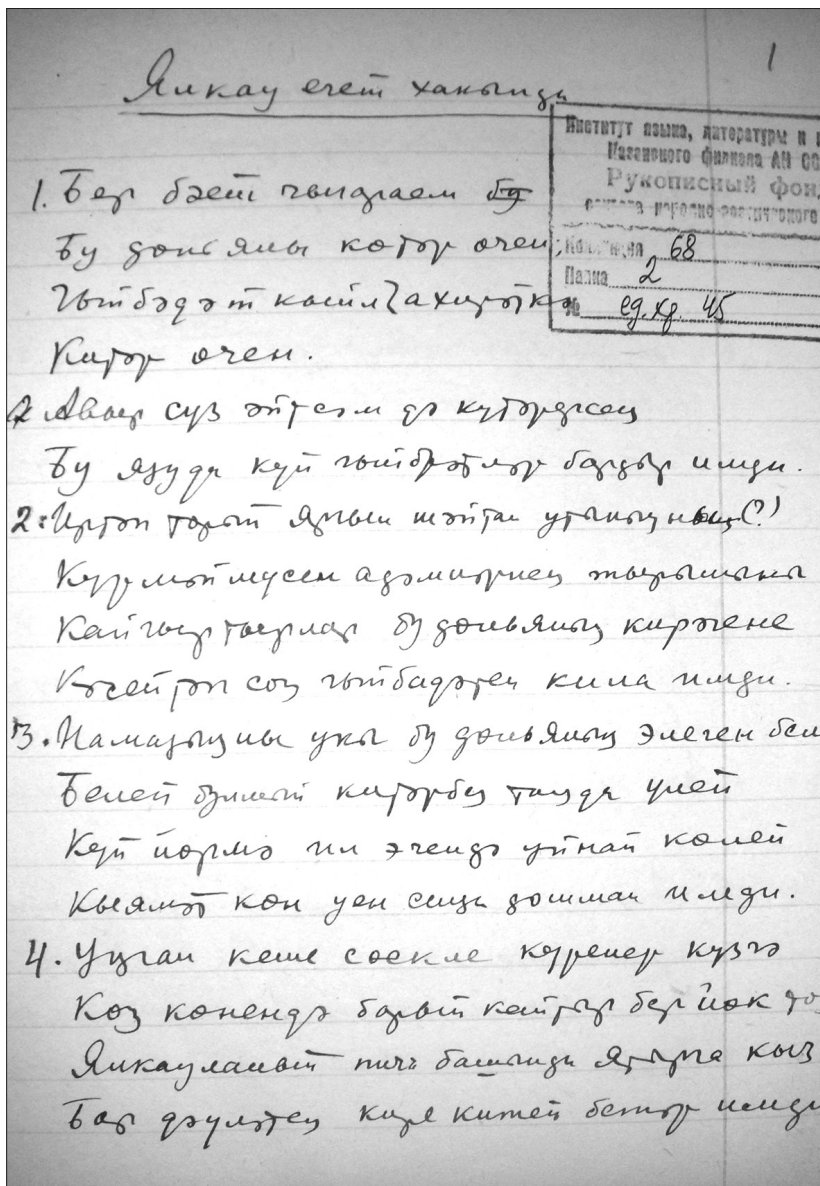 1
Ялкау егет хакында
Институт языка, литературы и
Казанского филиала АН СС
Рукописный фонд
68
Папка 2
№ ед. хр. 45
1. Бер бәет чыгарам бу
Бу дөньяны көтәр өчен;
Гыйбәдәт кыйл ахирәткә
Китәр өчен.
2 Авыр сүз әйтсәм дә күтәрерсең
Бу язуда күп гыйбрәтләр бардыр имди.
2. Иртән торып
Күрмәймүсен адәмнәрнең
Кайгыртырлар бу дөньяның кирәгене
Кичейтәп соң гыйбадәтең кила имди.
3. Намазыңны укы бу дөньяның элеген бел
Белеп булмый китәрбез таңда үлеп
Күп йөрмә ил эчендә уйнап көлеп
Кыямәт көн уен сиңа дошман имди.
4. Уңган кеше сөекле күренер күзгә
Көз көнендә барып кайтыр бер йөк
Ялкауланып пич башында ятырга кыз
Бар дәүләтең кире китеп бетәр имди